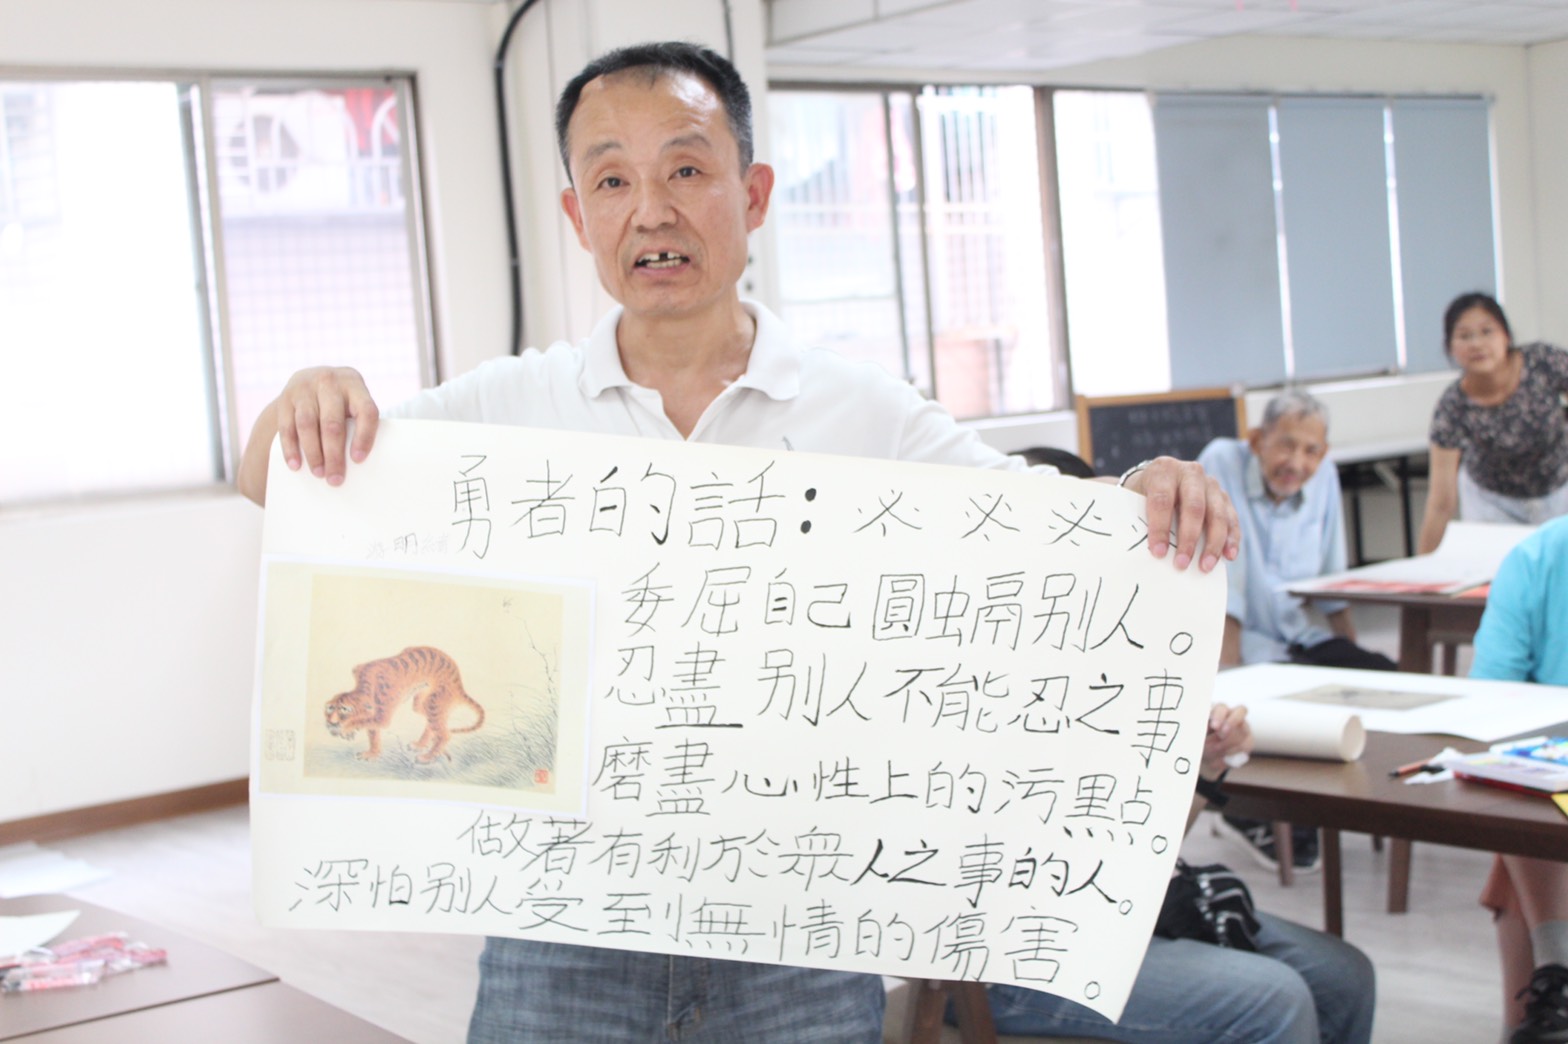 勇者的話：
委屈自己圓螎别人。
忍盡别人不能忍之事。
磨盡心性上的污點。
做著有利於眾人之事的人。
深怕别人受到憮情的傷害。